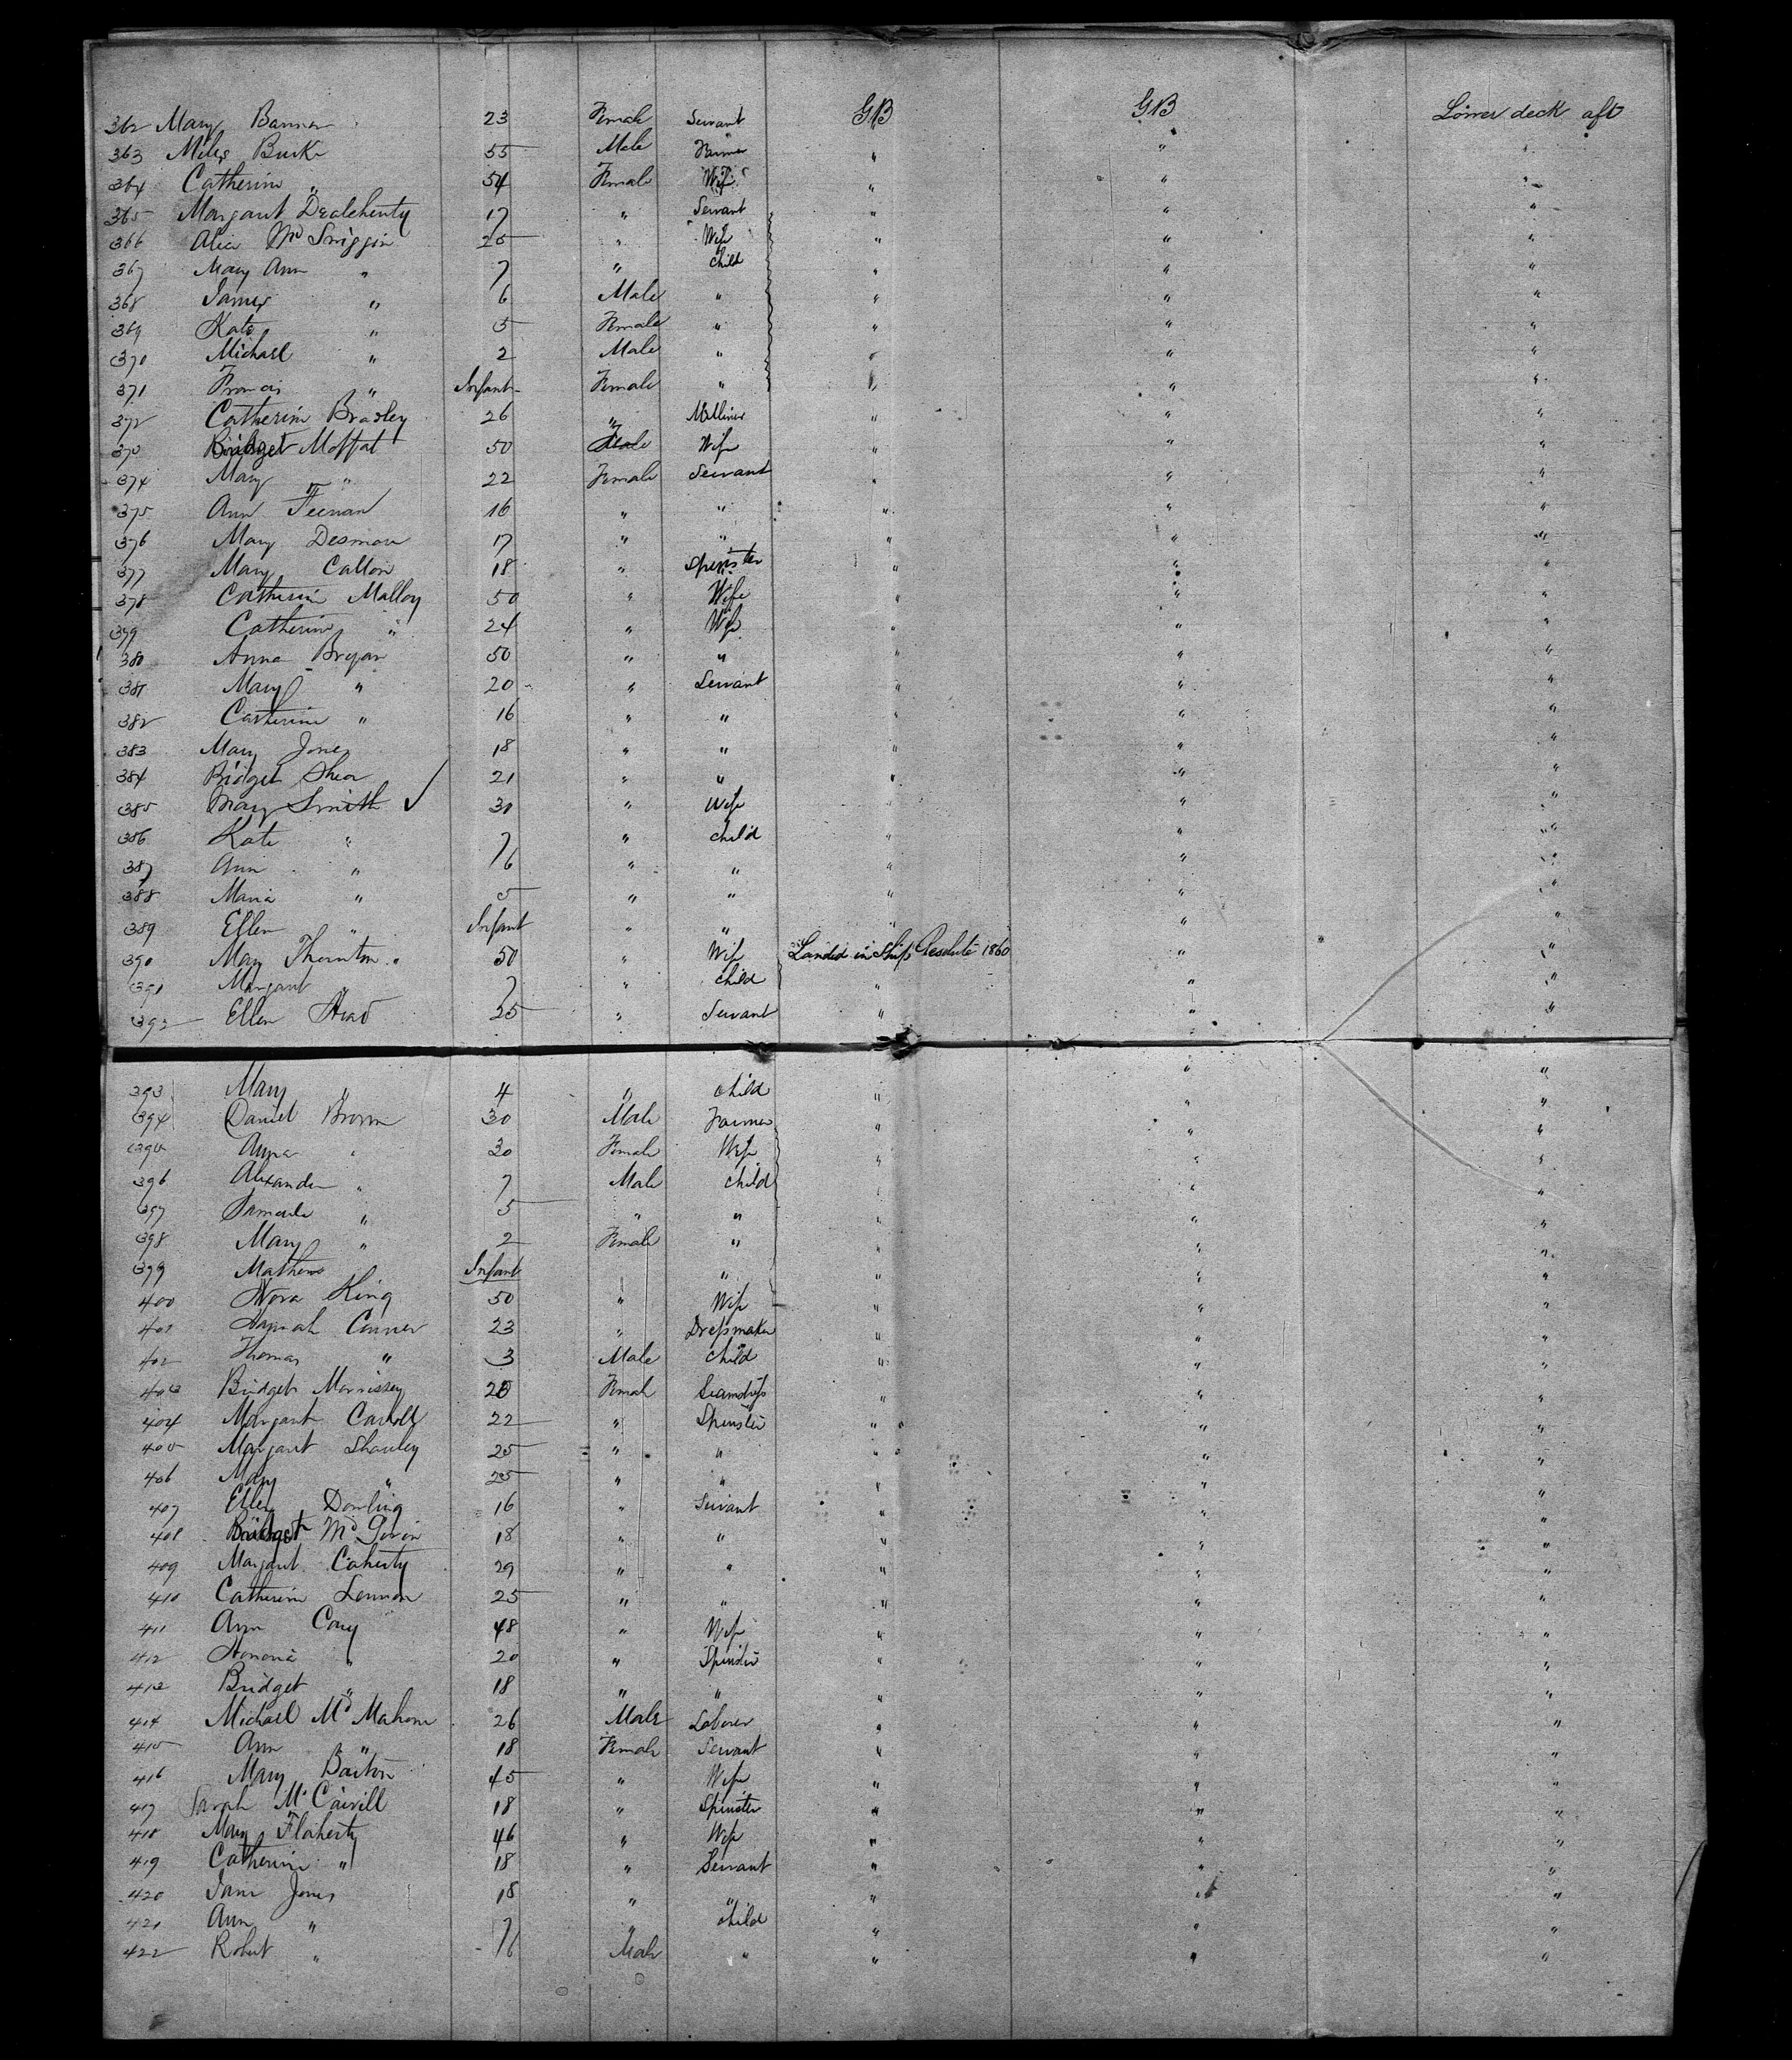 362 Mary Bannon 23 Female Servant GB GB Lower deck aft
363 Miles Burke 55 Male Farmer " " "
364 Catherine " 54 Female Wife " " "
365 Margaret 17 " Servant " " "
366 Alice Mc Swiggin 25 " Wife " " "
367 Mary Ann " 7 " child " " "
368 James " 6 Male " " " "
369 Kate " 5 Female " " " "
370 Michael " 2 Male " " " "
371 Francis " Infant Female " " " "
372 Catherine Bradley 26 " Milliner " " "
373 Bridget Moffat 50 Wife " " "
374 Mary " 22 Female Servant " " "
375 Ann Feenan 16 " " " " "
376 Mary Desmon 17 " " " " "
377 Mary Callon 18 " Spinster " " "
378 Catherine Malloy 50 " Wife " " "
379 Catherine " 24 " Wife " " "
380 Anna Bryan 50 " " " " "
381 Mary " 20 " Servant " " "
382 Catherine " 16 " " " " "
383 Mary Jones 18 " " " " "
384 Bridget Shea 21 " " " " "
385 Mary Smith ✓ 30 " Wife " " "
386 Kate " 7 " child " " "
387 Ann " 6 " " " " "
388 Maria " 5 " " " " "
389 Ellen " Infant " " " " "
390 Mary Thornton 50 " Wife Landed in Ship Resolute 1860 " "
391 Margaret " 7 " child " " "
392 Ellen Head 25 " Servant " " "
393 Mary " 4 " child " " "
394 Daniel Brown 30 Male Farmer " " "
395 Anna " 30 Female Wife " " "
396 Alexander " 7 Male child " " "
397 " 5 " " " " "
398 Mary " 2 Female " " " "
399 Mathew Infant " " " "
400 Nora King 50 " Wife " " "
401 Hannah Conner 23 " Dressmaker " " "
402 Thomas " 3 Male child " " "
403 Bridget Morrissey 20 Female Seamstress " " "
404 Margaret Carroll 22 " Spinster " " "
405 Margaret Shanley 25 " " " " "
406 Mary " 25 " " " " "
407 Ellen Dowling 16 " Servant " " "
408 Bridget Mc Givin 18 " " " " "
409 Margaret Coherty 29 " " " " "
410 Catherine Lennon 25 " " " " "
411 Ann Cary 48 " Wife " " "
412 Honoria " 20 " Spinster " " "
413 Bridget " 18 " " " " "
414 Michael Mc Mahon 26 Male Laborer " " "
415 Ann " 18 Female Servant " " "
416 Mary Barton 45 " Wife " " "
417 Sarah Mc Carvill 18 " Spinster " " "
418 Mary Flaherty 46 " Wife " " "
419 Catherine " 18 " Servant " " "
420 Jane Jones 18 " " " " "
421 Ann " 7 " child " " "
422 Robert " 6 Male " " " "